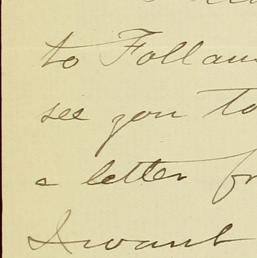 to Follan
see you to
a letter fr
I want